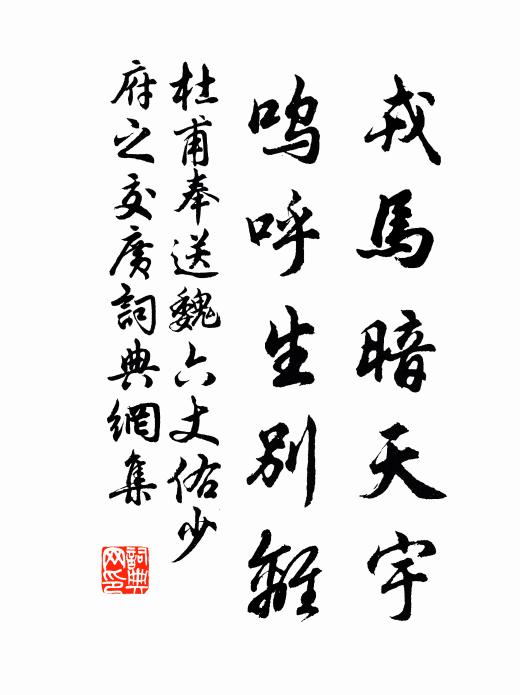 戎馬暗天宇
嗚呼生別離
杜甫奉送魏六丈佑少
府之交廣詞典網集
詞典
网印